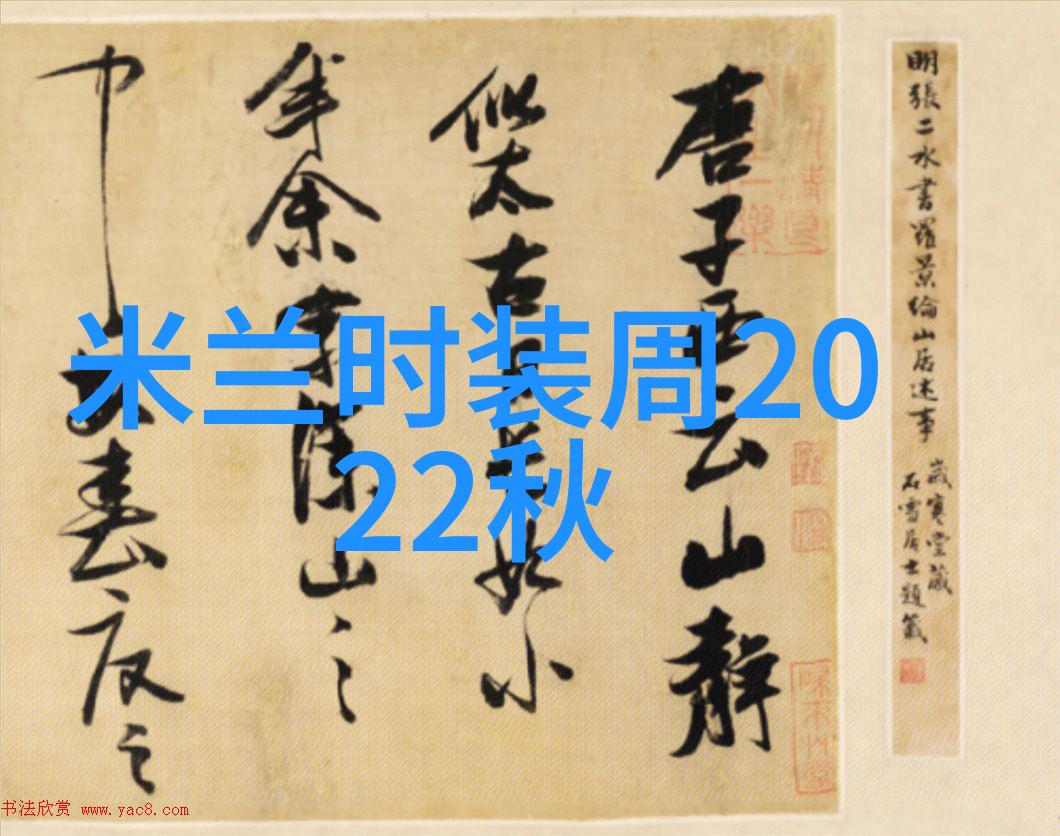 米兰时装周20
22秋
明張二水書羅景綸山居述事
歲寒堂藏
石雪居士題籤
唐子西云山靜
似太古日長如小
年余家深山之
中每春夏之
书法欣赏 www.yac8.com